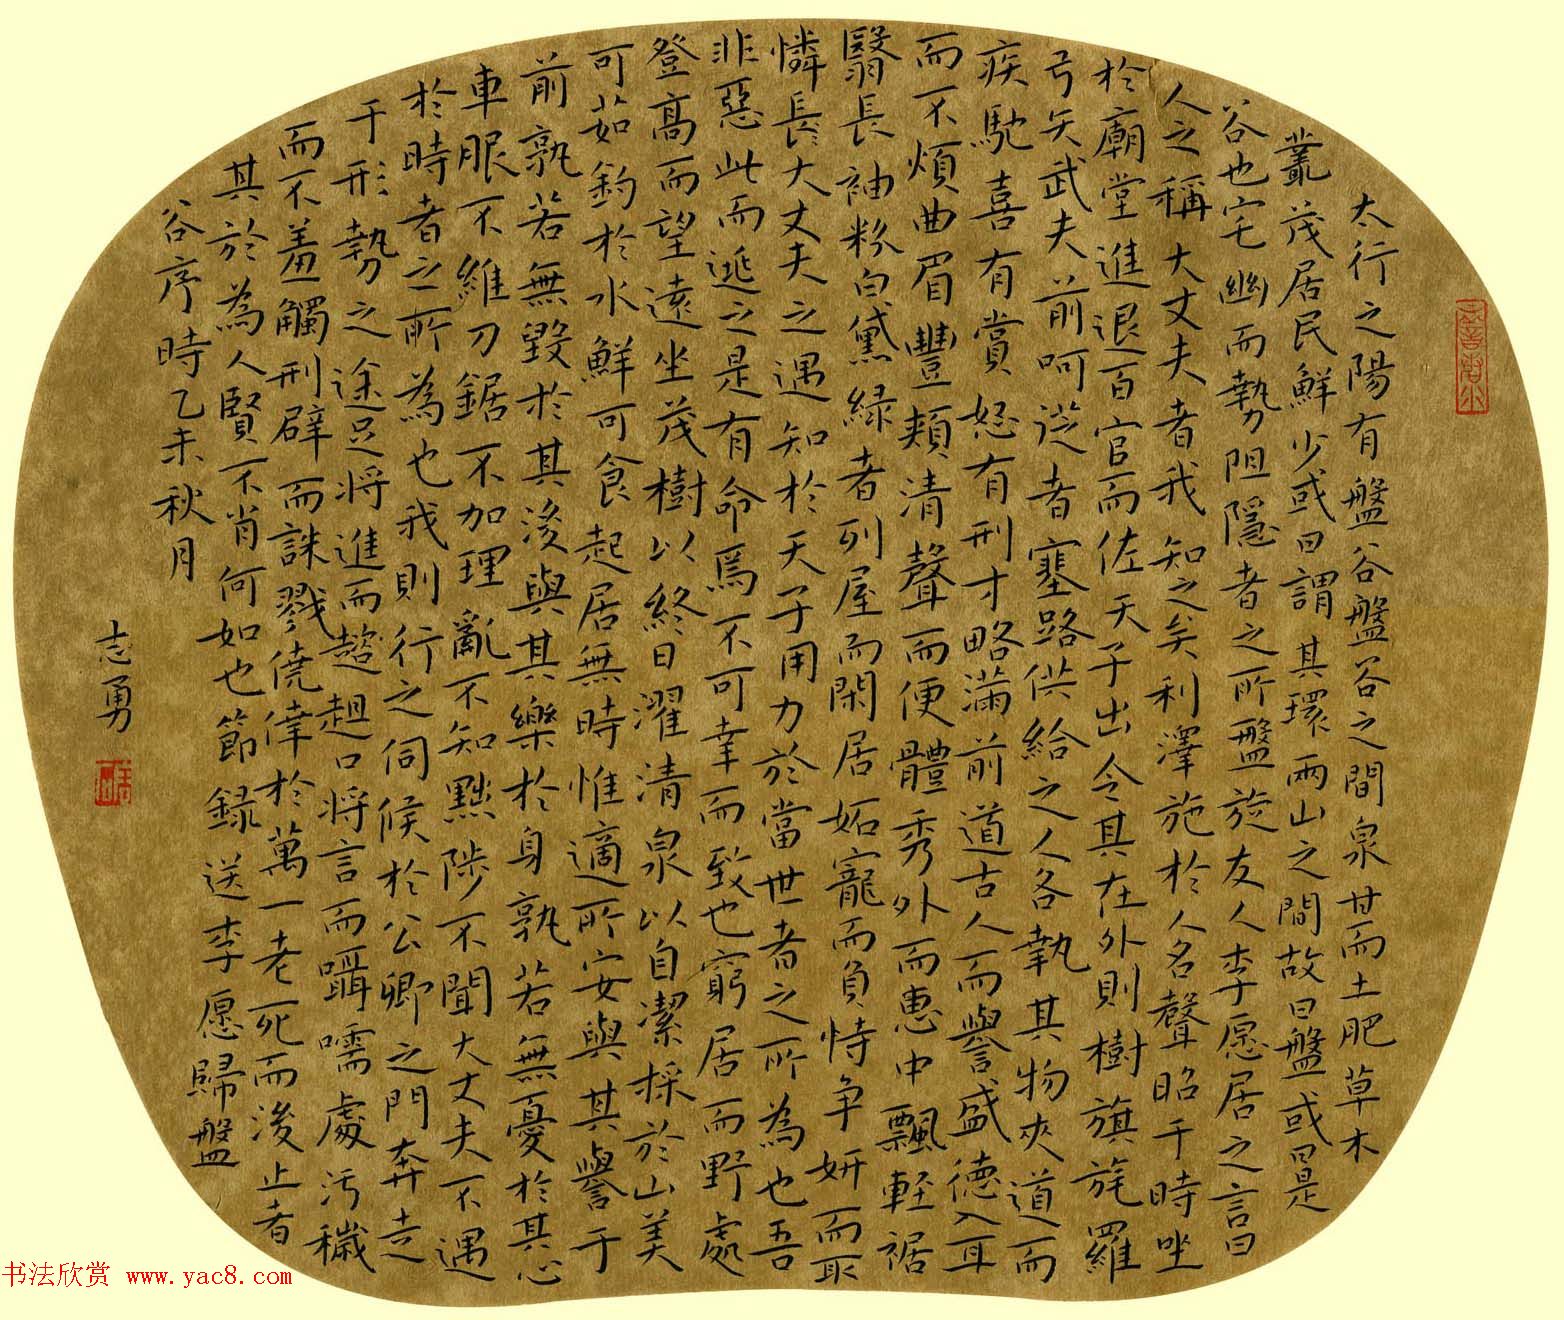 太行之陽有盤谷盤谷之間泉甘而土肥草木
叢茂居民鮮少或曰謂其環兩山之間故曰盤或曰是
谷也宅幽而勢阻隱者之所盤旋友人李愿居之言曰
人之稱大丈夫者我知之矣利澤施於人名聲昭于時坐
於廟堂進退百官而佐天子出令其在外則樹旗旄羅
弓矢武夫前呵從者塞路供給之人各執其物夾道而
疾馳喜有賞怒有刑才略滿前道古人而譽盛德入耳
而不煩曲眉豐頰清聲而便體秀外而惠中飄輕裾
翳長袖粉白黛緑者列屋而閑居妬寵而負恃争妍而取
憐長大丈夫之遇知於天子用力於當世者之所為也吾
非惡此而逃之是有命焉不可幸而致也窮居而野處
登高而望遠坐茂樹以終日濯清泉以自潔採於山美
可茹釣於水鮮可食起居無時惟適所安與其譽于
前孰若無毀於其後與其樂於身孰若無憂於其心
車服不維刀鋸不加理亂不知黜陟不聞大丈夫不遇
於時者之所為也我則行之伺候於公卿之門奔走
于形勢之途足將進而趑趄口將言而囁嚅處污穢
而不羞觸刑辟而誅戮僥倖於萬一老死而後止者
其於為人賢不肖何如也節録送李愿歸盤
谷序時乙未秋月
志勇
书法欣赏 www.yac8.com